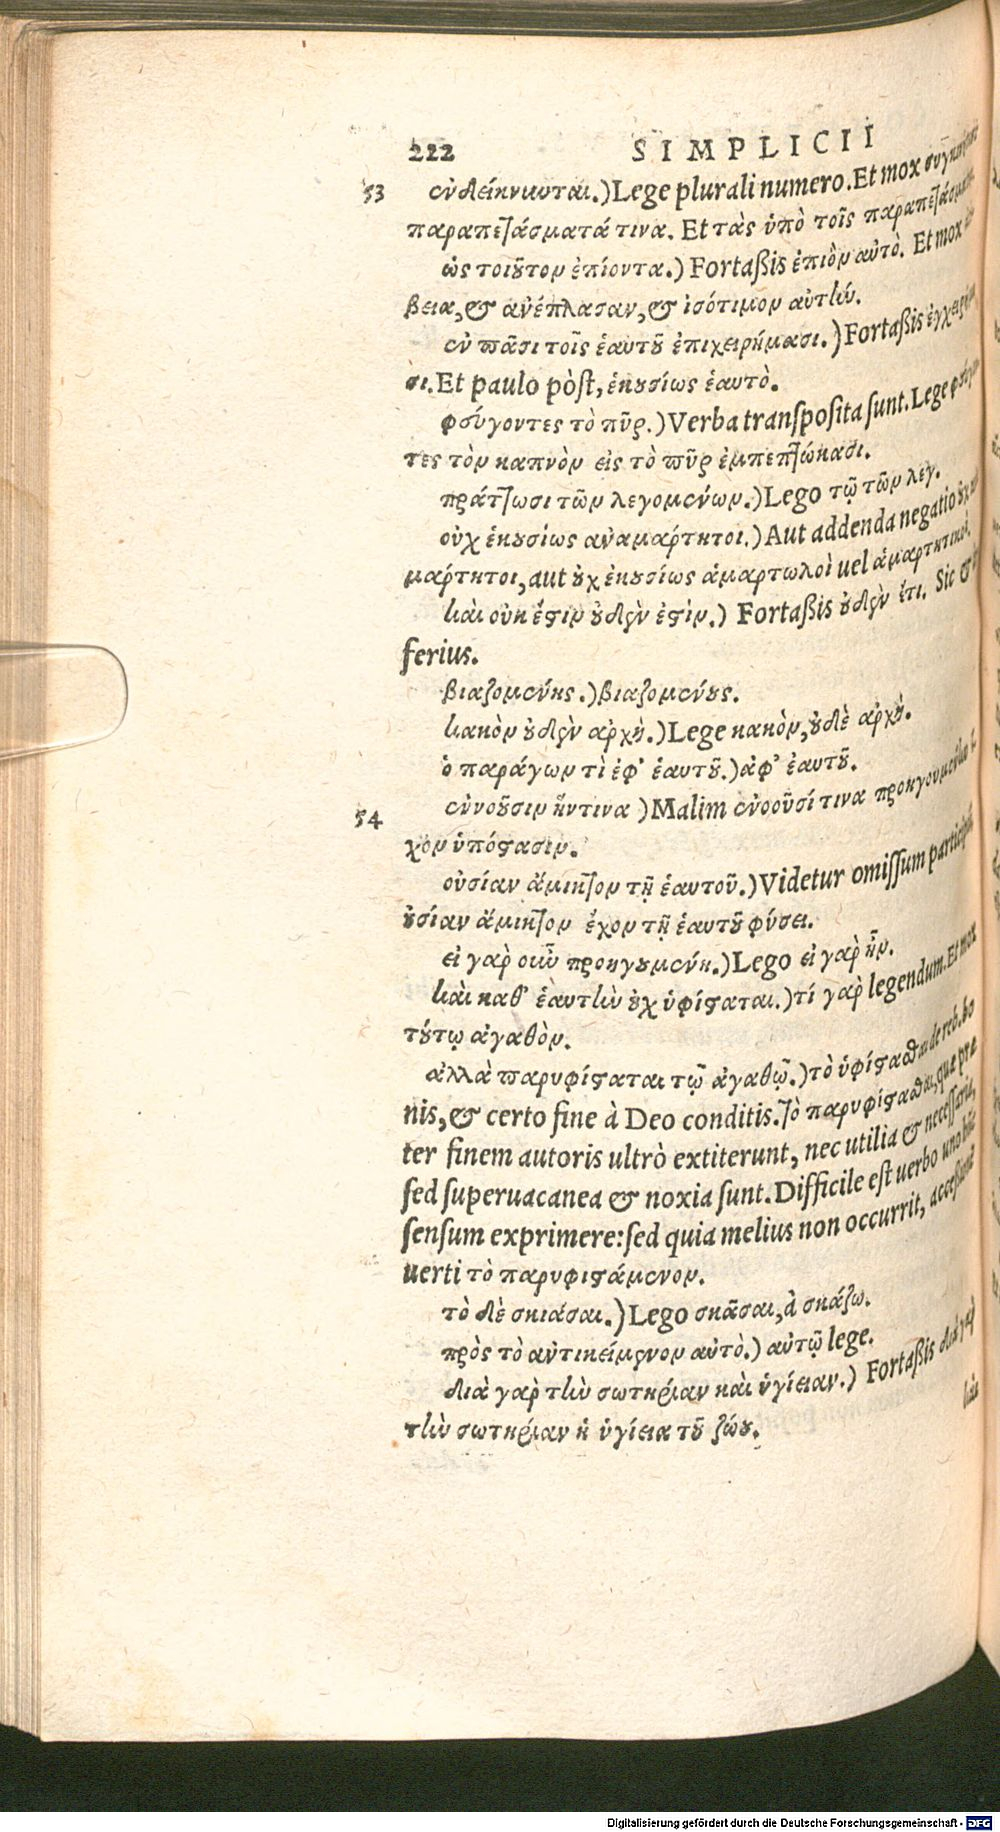 222 SIMPLICII
53 ἐνδείκνυνται.) Lege plurali numero. Et mox
παραπετάσματά τινα. Et τὰς ὑπὸ τοῖς
ὡς τοιοῦτον ἐπίοντα.) Fortaßis ἐπιὸν αὐτὸ. Et mox
βεια, & ἀνέπλασαν, & ἰσότιμον αὐτὴν.
ἐν πᾶσι τοῖς ἑαυτοῦ ἐπιχειρήμασι.) Fortaßis
σι. Et paulo pòst, ἑκουσίως ἑαυτὸ.
φεύγοντες τὸ πῦρ.) Verba transposita sunt. Lege
τες τὸν καπνὸν εἰς τὸ πῦρ ἐμπεπτώκασι.
πράττωσι τῶν λεγομένων.) Lego τῷ τῶν λεγ.
οὐχ ἑκουσίως ἀναμάρτητοι.) Aut addenda negatio οὐχ
μάρτητοι, aut οὐχ ἑκουσίως ἁμαρτωλοὶ uel ἁμαρτητικοὶ.
καὶ οὐκ ἔστιν οὐδὲν ἐστὶν.) Fortaßis οὐδὲν ἔτι. Sic &
ferius.
βιαζομένης.) βιαζομένους.
κακὸν οὐδὲν ἀρχὴ.) Lege κακὸν, οὐδὲ ἀρχὴ.
ὁ παράγων τὶ ἐφ' ἑαυτοῦ.) ἀφ' ἑαυτοῦ.
54 ἐννοοῦσιν ἥντινα) Malim ἐνοοῦσί τινα προηγουμένην
χον ὑπόστασιν.
οὐσίαν ἄμικτον τῇ ἑαυτοῦ.) Videtur omissum
οὐσίαν ἄμικτον ἔχον τῇ ἑαυτοῦ φύσει.
εἰ γὰρ οὖν προηγουμένη.) Lego εἰ γὰρ ἦν.
καὶ καθ' ἑαυτὴν οὐχ ὑφίσταται.) τί γὰρ legendum. Et mox
τούτῳ ἀγαθὸν.
ἀλλὰ παρυφίσταται τῷ ἀγαθῷ.) τὸ ὑφίστασθαι de reb. bo
nis, & certo fine à Deo conditis. τὸ παρυφίστασθαι, quæ præ
ter finem autoris ultrò extiterunt, nec utilia & necessaria,
sed superuacanea & noxia sunt. Difficile est uerbo uno hũc
sensum exprimere: sed quia melius non occurrit,
uerti τὸ παρυφιστάμενον.
τὸ δὲ σκιάσαι.) Lego σκᾶσαι, ἀ σκάζω.
πρὸς τὸ ἀντικείμενον αὐτὸ.) αὐτῷ lege.
διὰ γὰρ τὴν σωτηρίαν καὶ ὑγίειαν.) Fortaßis διὰ γὰρ
τὴν σωτηρίαν ἡ ὑγίεια τοῦ ζώου.
καὶ
Digitalisierung gefördert durch die Deutsche Forschungsgemeinschaft - DFG